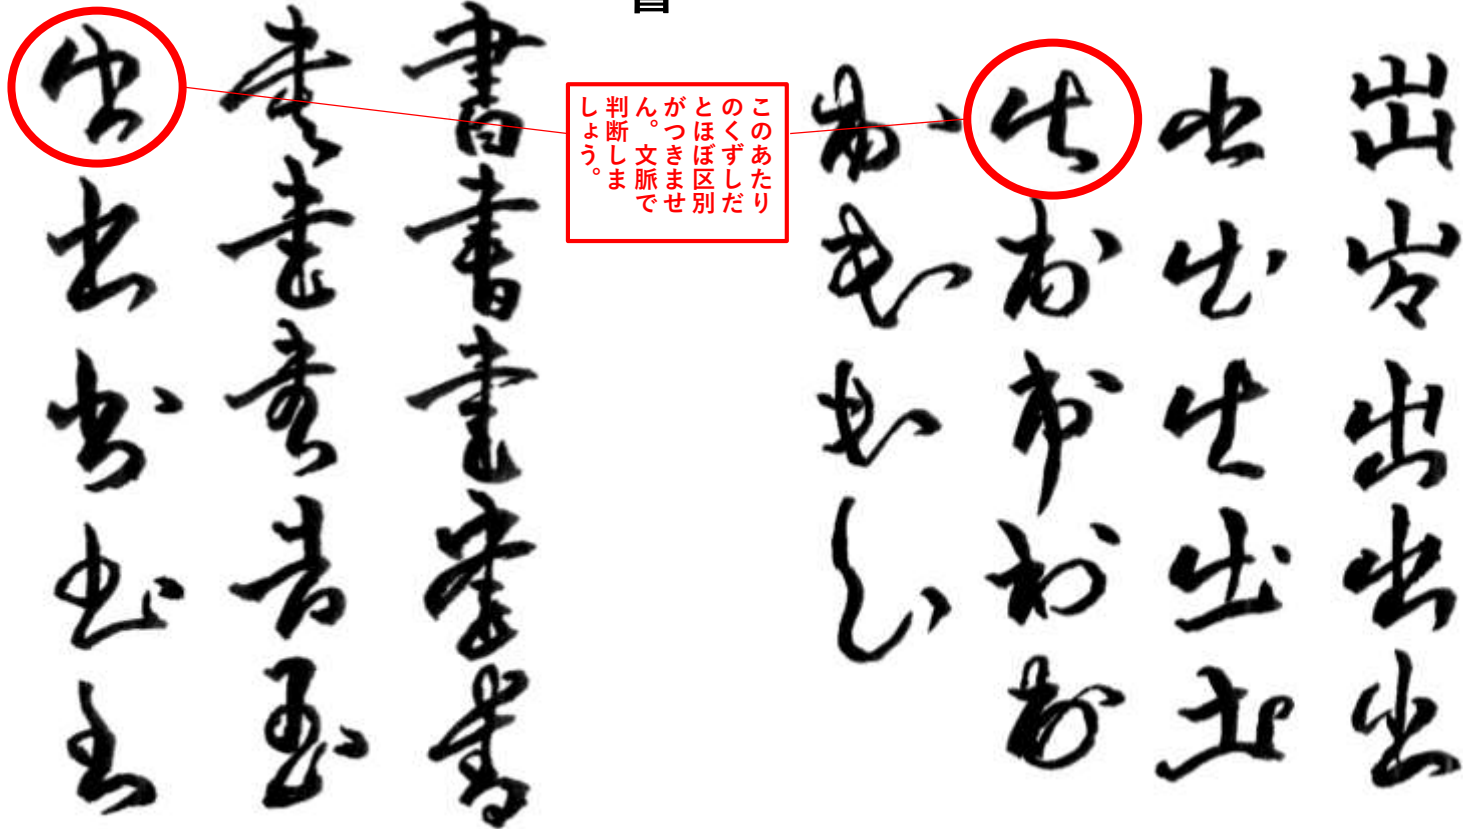 出出出出出
出出出出出
出出出出出
出出出出
このあたり
のくずしだ
とほぼ区別
がつきませ
ん。文脈で
判断しま
しょう。
書書書書書
書書書書書
書書書書書